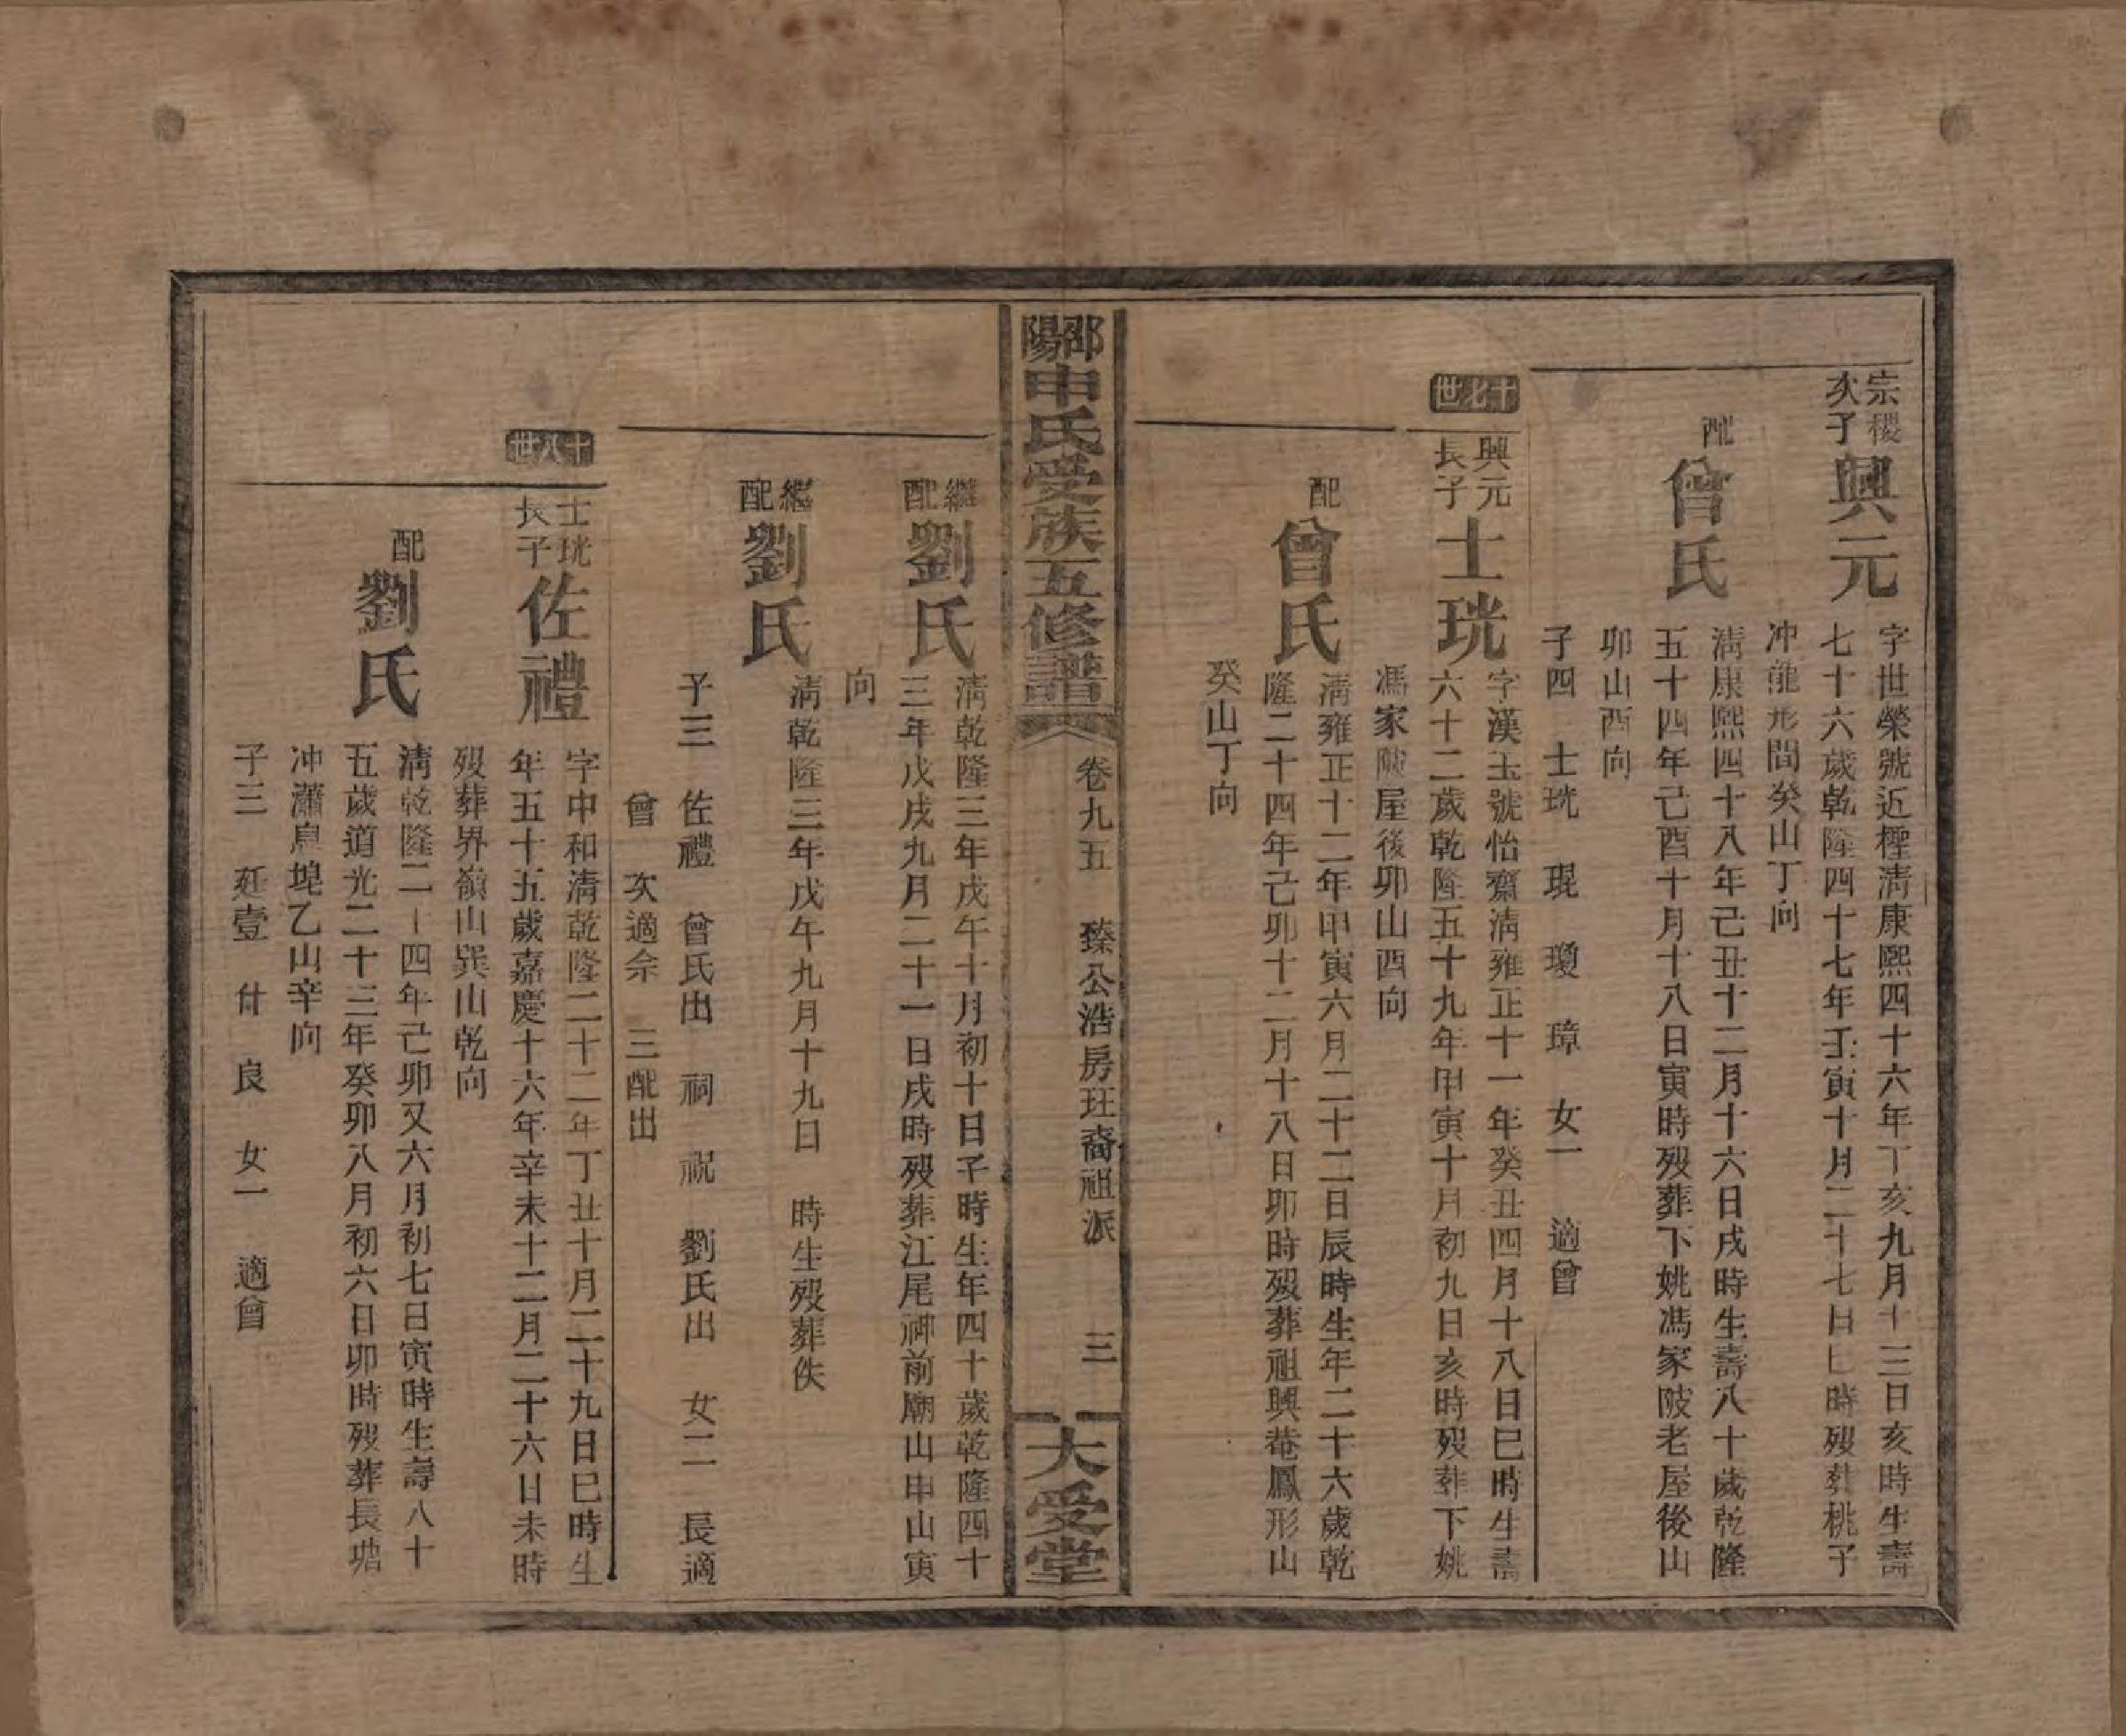 宗稷
次子
興元
字世榮號近樫清康熙四十六年丁亥九月十三日亥時生壽
七十六歲乾隆四十七年壬寅十月二十七日巳時歿葬桃子
冲龍形間癸山丁向
配
曾氏
清康熙四十八年己丑十二月十六日戌時生壽八十歲乾隆
五十四年己酉十月十八日寅時歿葬下姚馮家陂老屋後山
卯山酉向
子四 士珖 琨 瓊 璋 女一 適曾
十七世
興元
長子
士珖
字漢玉號怡齋清雍正十一年癸丑四月十八日巳時生壽
六十二歲乾隆五十九年甲寅十月初九日亥時歿葬下姚
馮家陂屋後卯山酉向
配
曾氏
清雍正十二年甲寅六月二十二日辰時生年二十六歲乾
隆二十四年己卯十二月十八日卯時歿葬祖興菴鳳形山
癸山丁向
邵陽申氏受族五修譜
卷九五 臻公浩房玨裔祖派 三
大受堂
繼配
劉氏
清乾隆三年戊午十月初十日子時生年四十歲乾隆四十
三年戊戌九月二十一日戌時歿葬江尾神前廟山申山寅
向
繼配
劉氏
清乾隆三年戊午九月十九日 時生歿葬佚
子三 佐禮 曾氏出 祠 祝 劉氏出 女二 長適
曾 次適佘 三配出
十八世
士珖
長子
佐禮
字中和清乾隆二十二年丁丑十月二十九日巳時生
年五十五歲嘉慶十六年辛未十二月二十六日未時
歿葬界嶺山巽山乾向
配
劉氏
清乾隆二十四年己卯又六月初七日寅時生壽八十
五歲道光二十三年癸卯八月初六日卯時歿葬長塘
冲瀟烏埠乙山辛向
子三 廷壹 什 良 女一 適曾